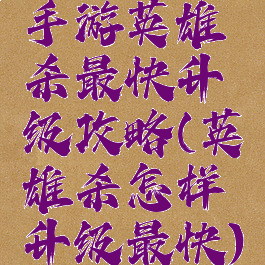 手游英雄
杀最快升
级攻略(英
雄杀怎样
升级最快)